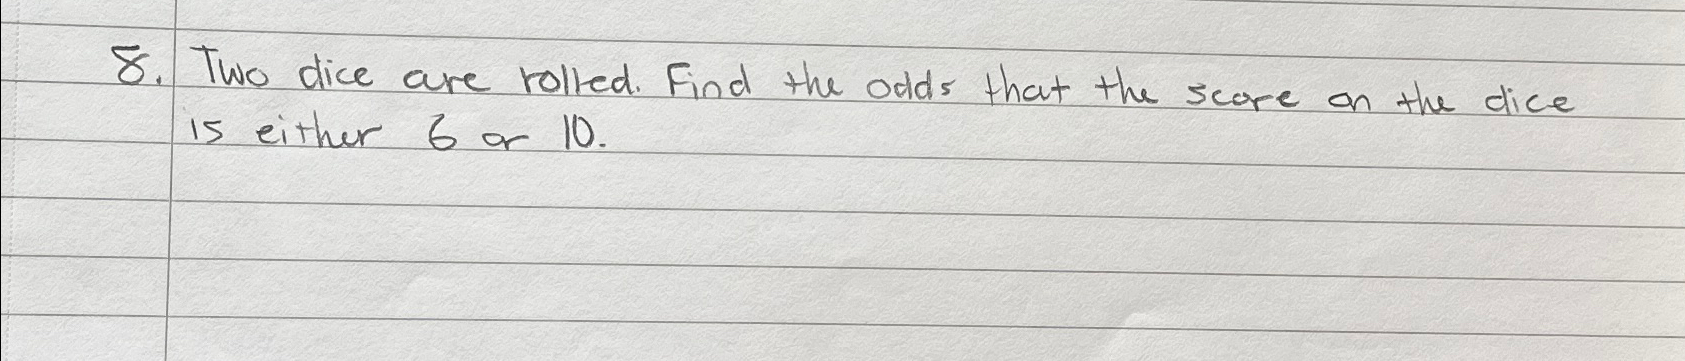 8. Two dice are rolled. Find the odds that the score on the dice
is either 6 or 10.